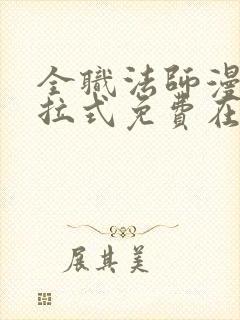 全職法師漫
拉式免費在
展其美